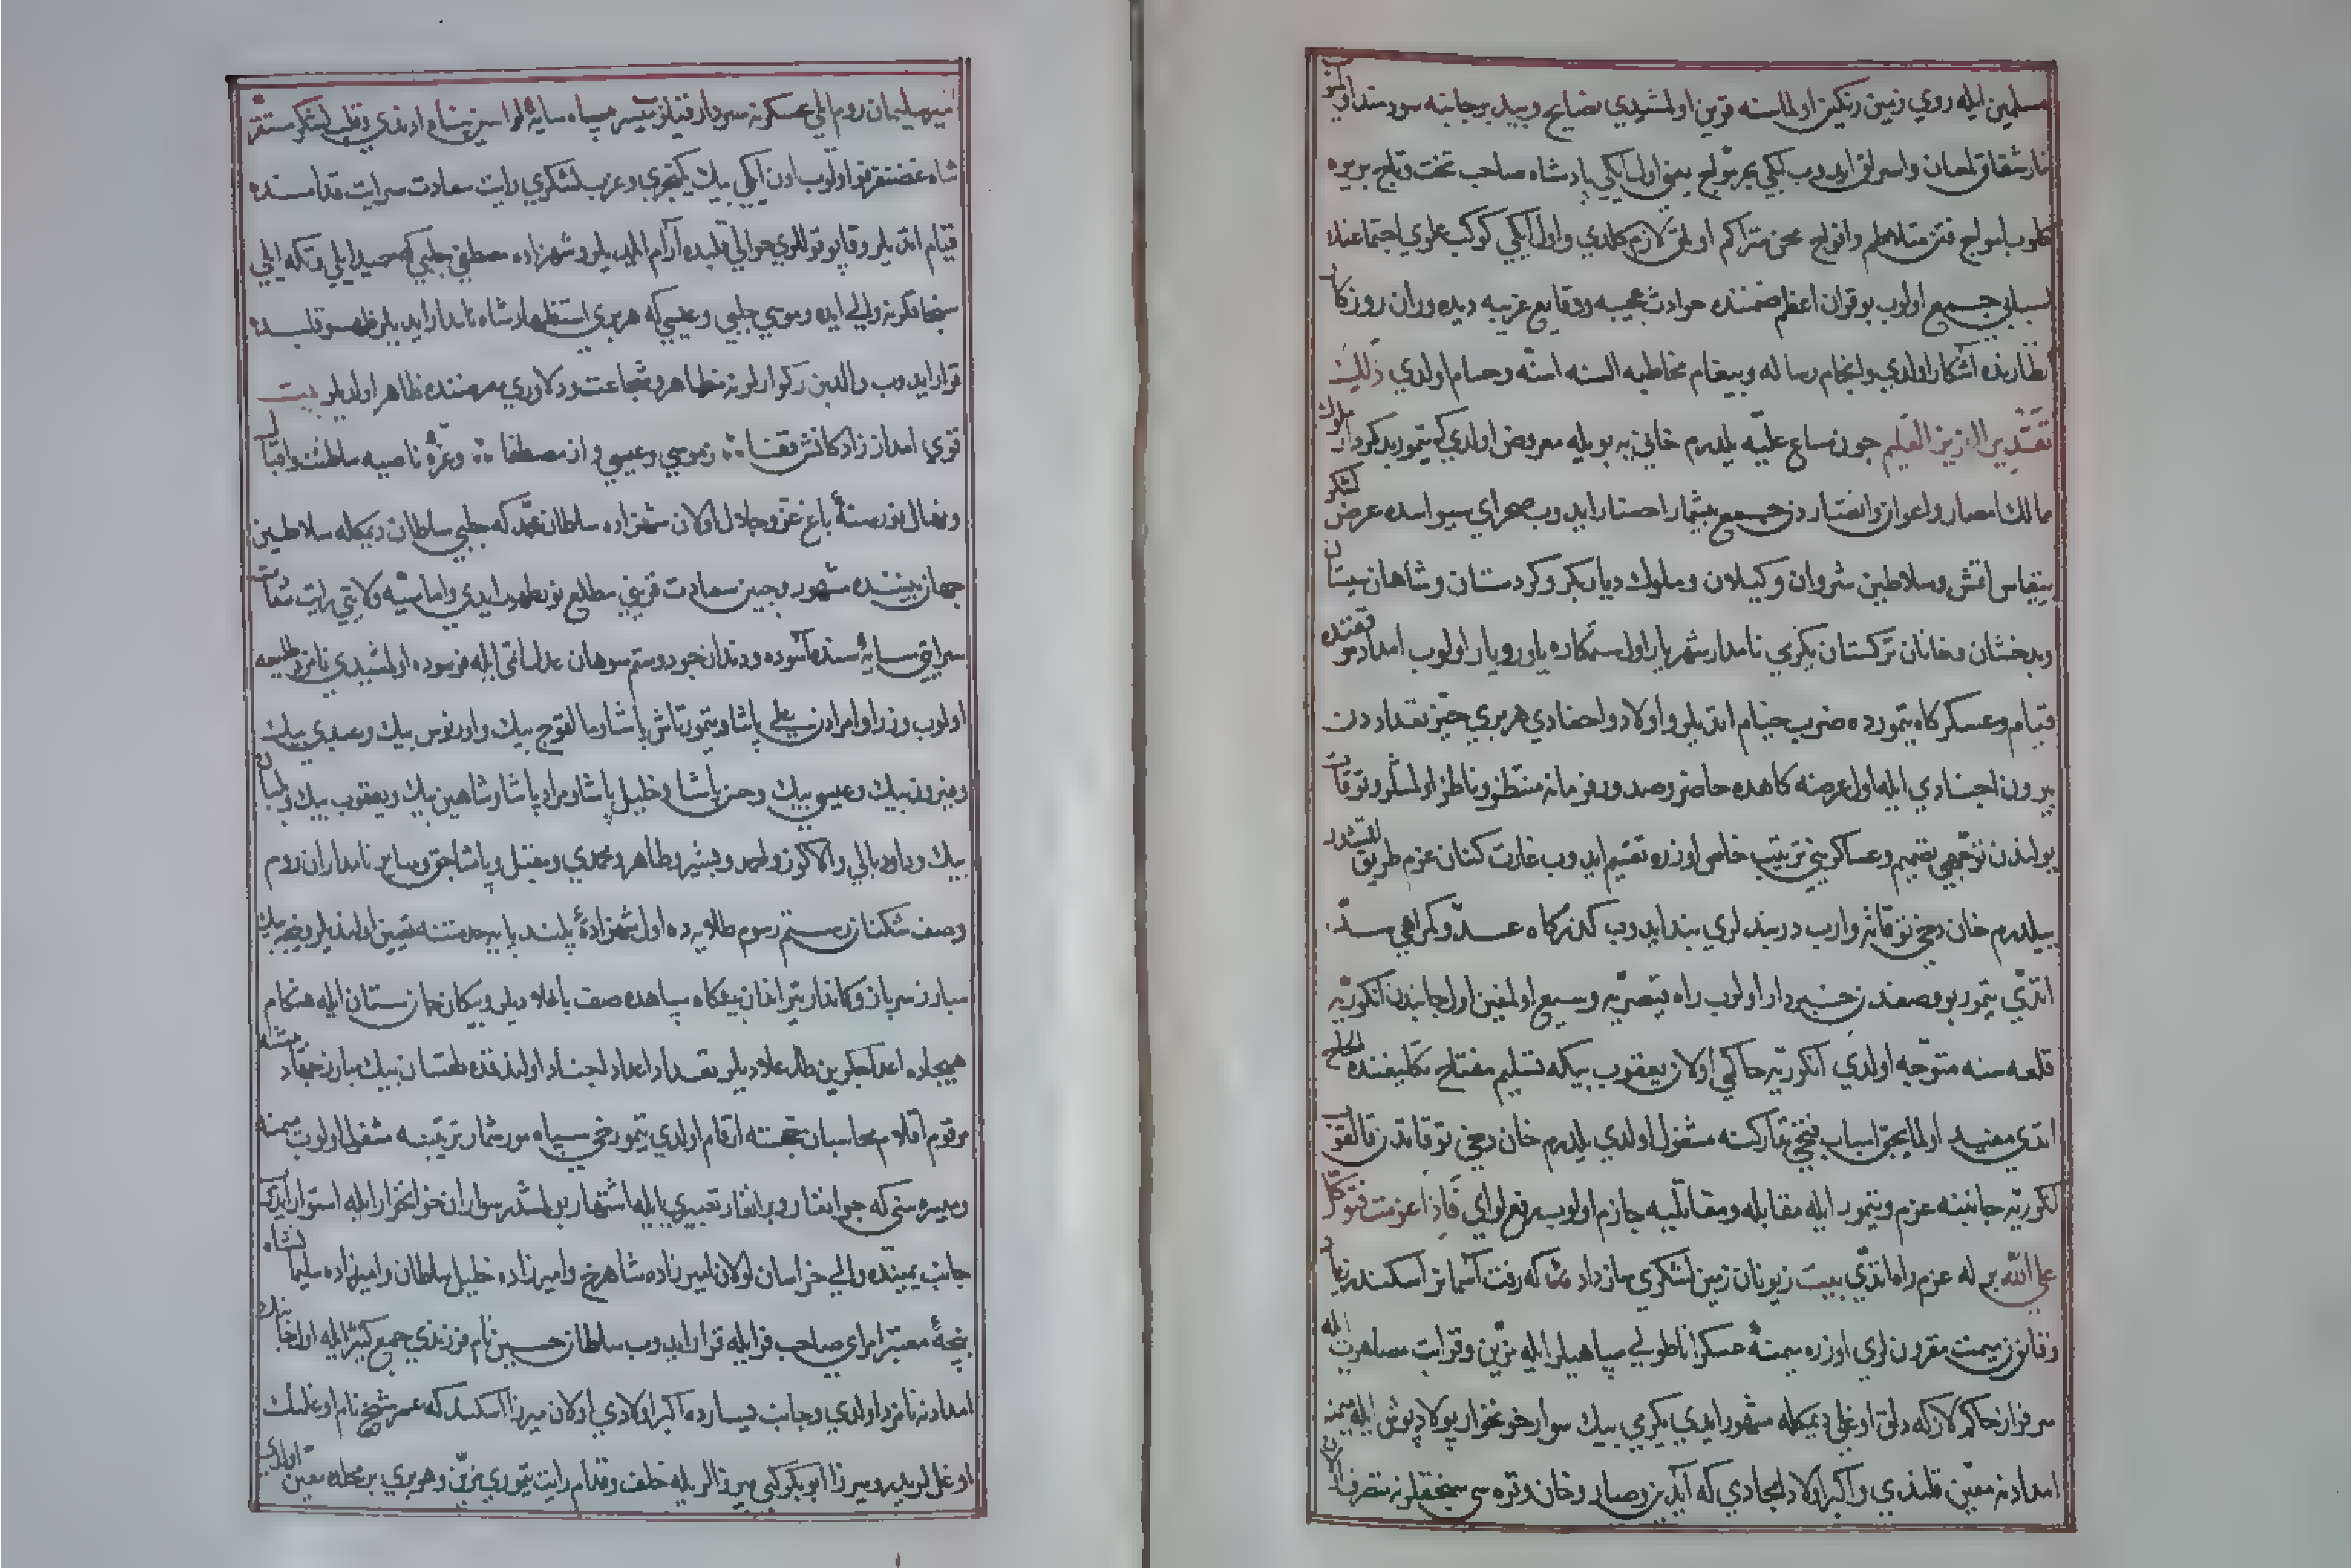 مسلمين ايله روي زمين رنكين اولماسنه قرين اولمشيدي نصايح وپند بر جانبه سودمند اولميوب
نار شقاق لمعان واسراق ايدوب ايكي بحر مواج يعني اول ايكي پادشاه صاحب تخت وتاج بر يره
كلوب امواج فتن متلاطم وافواج محن متراكم اولمق لازم كلدي واول ايكي كوكب علوي اجتماعنه
جمع اولوب بو قران اعظم ضمننده حوادث عجيبه ووقايع غريبه ديده وران روزكار
نظارنده اشكار اولدي وانجام رساله وپيغام مخاطبه السنه اسنه وحسام اولدي ذلك
تقدير العزيز العليم چون مسامع عليه يلدرم خاني يه بويله معروض اولدي كه تيمور بد كردار
ممالك امصار واعوان وانصاردن جمع بيشمار احضار ايدوب صحراي سيواسده عرض لشكر
اتمش وسلاطين شروان وكيلان وملوك ديار بكر وكردستان وشاهان سيستان
وبدخشان وخانان تركستان بكي نامدار شهريار اول ستمكاره ياور ويار اولوب امداد
قيام وعسكركاه تيمورده ضرب خيام اتديلر واولاد واحفادي هر بري حيز تعداددن
بيرون اجنادي ايله اول عرصه كاهده حاضر وصدور فرمانه منتظر وناظر اولمشلر وتوقات
يولندن توجهي تصميم وعساكريني ترتيب خاص اوزره تقسيم ايدوب غارت كنان عزم طريق
يلدرم خان دخي توقاته واروب دربندلري بند ايدوب كذركاه عدو كراهي سد
اتدي تيمور بو وضعدن خبردار اولوب راه قيصريه وسيع اولمغين اول جانبدن انكوريه
قلعه سنه متوجه اولدي انكوريه حاكمي اولان يعقوب بيكه تسليم مفتاح تكليفنده
اتدي مفيد اولمايجق اسباب فتحي تداركنه مشغول اولدي يلدرم خان دخي توقاتدن قالقوب
انكوريه جانبنه عزم وتيمور ايله مقابله ومقاتليه جازم اولوب رفع لواي فاذا عزمت فتوكل
على الله برله عزم راه اتدي بيت ز يونان زمين لشكري ساز داد كه رفت آسمانرا سكندر ز ياد
وقانون ميمنت مقرونلري اوزره ميمنه عسكر اناطولي سپاهيلري ايله تزيين وقرابت مصاهرت ايله
سرفراز حاكم لاز كه دلق اوغلي ديمكله مشهور ايدي يكرمي بيك سوار خونخوار پولاد پوش ايله ميمنه
امدادنه معين قلندي واكبر اولاد امجادي كه آيدين وصاروخان وقره سي سنجقلرنه متصرف اولان
امير سليمان روم ايلي عسكرنه سردار قيلنوب ميسره سپاه سايه لواسن پناه ادندي وقلب لشكر مستقر
شاه غضنفر فر اولوب اون ايكي بيك يكيچري وعزب لشكري رايت سعادت سرايت قدامنده
قيام اتديلر وقاپو قوللري حوالي قلبده آرام ايلديلر وشهزاده مصطفي چلبي كه حميد ايلي وتكه ايلي
سنجاقلرنه والي ايدي وموسي چلبي وعيسي كه هر بري استظهار شاه نامدار ايديلر ظهر قلبده
قرار ايدوب والدين بزركوارلرنه مظاهر وشجاعت ودلاوري عرصه سنده ظاهر اولديلر بيت
قوي امداد از زادكانش قفا ز موسي وعيسي و از مصطفا وغره ناصيه سلطنت واقبال
ونهال نورسته باغ عز وجلال اولان شهزاده سلطان محمد كه چلبي سلطان ديمكله سلاطين
جهان بيننده مشهور وجبين سعادت قريني مطلع نور ظهور ايدي واماسيه ولايتي رايت سعادت
سرايتي سايه سنده آسوده ودندان جور وستم سوهان عدالتي ايله فرسوده اولمشيدي نامزد طليعه
اولوب وزرا وامرادن علي پاشا وتيمورتاش پاشا ومالقوج بيك واورنوس بيك وعبدي بيك
وفيروز بيك وعيسي بيك وحسن پاشا وخليل پاشا ومراد پاشا وشاهين بيك ويعقوب بيك
بيك وداود بالي والاكوز واحمد وبشير وطاهر ومحمدي ومقبل وپاشاجق وساير نامداران روم
وصف شكنان رستم رسوم طلايه ده اول شهزاده بلند پايه خدمتنه تعيين اولنديلر
مبارز سرباز وكماندار تير انداز پيكاه سپاهده صف باغلاديلر وپيكان جان ستان ايله هنكام
هيجاده اعدا جكرين طاغلاديلر تعداد اعداد اجناد اولندقده طقسان بيك مبارز جهاد پيشه
مرقوم اقلام محاسبان خجسته ارقام اولدي تيمور دخي سپاه مور شمار ترتيبنه مشغول اولوب ميمنه
وميسره سني كه جوانغار وبرانغار تعبيري ايله اشتهار بولمشدر سواران خونخوار ايله استوار ايدوب
جانب يمينده والي خراسان اولان اميرزاده شاهرخ واميرزاده خليل سلطان واميرزاده سليمانشاه
نيجه معتبر امراي صاحب فر ايله قرار ايدوب سلطان حسين نام فرزندي جمع كثير ايله اول جانبك
امدادنه نامزد اولدي وجانب يسارده اكبر اولادي اولان ميرزا اسكندر كه عمر شيخ نام اوغلنك
اوغلي اولديلر وميرزا ابو بكر كبي ميرزالر ايله خلف وقدام رايت تيموري مزين وهر بري بر محله معين اولدي